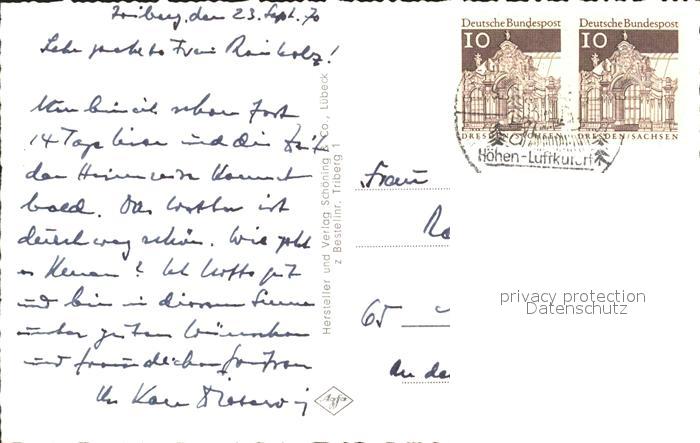 Triberg, den 23. Sept. 70
Sehr geehrte Frau Reinholz!
Nun bin ich schon fast
14 Tage hier und die Zeit
der Heimreise kommt
bald. Das Wetter ist
durchweg schön. Wie geht
es Ihnen? Ich hoffe gut
und bin in diesem Sinne
unter guten Wünschen
und freundlichen Grüßen
Ihr Karl
Hersteller und Verlag Schöning & Co., Lübeck
z Bestellnr. Triberg 1
Agfa
Deutsche Bundespost
10
DRESDEN/SACHSEN
Deutsche Bundespost
10
DRESDEN/SACHSEN
Höhen-Luftkurort
Frau
65
An de
privacy protection
Datenschutz